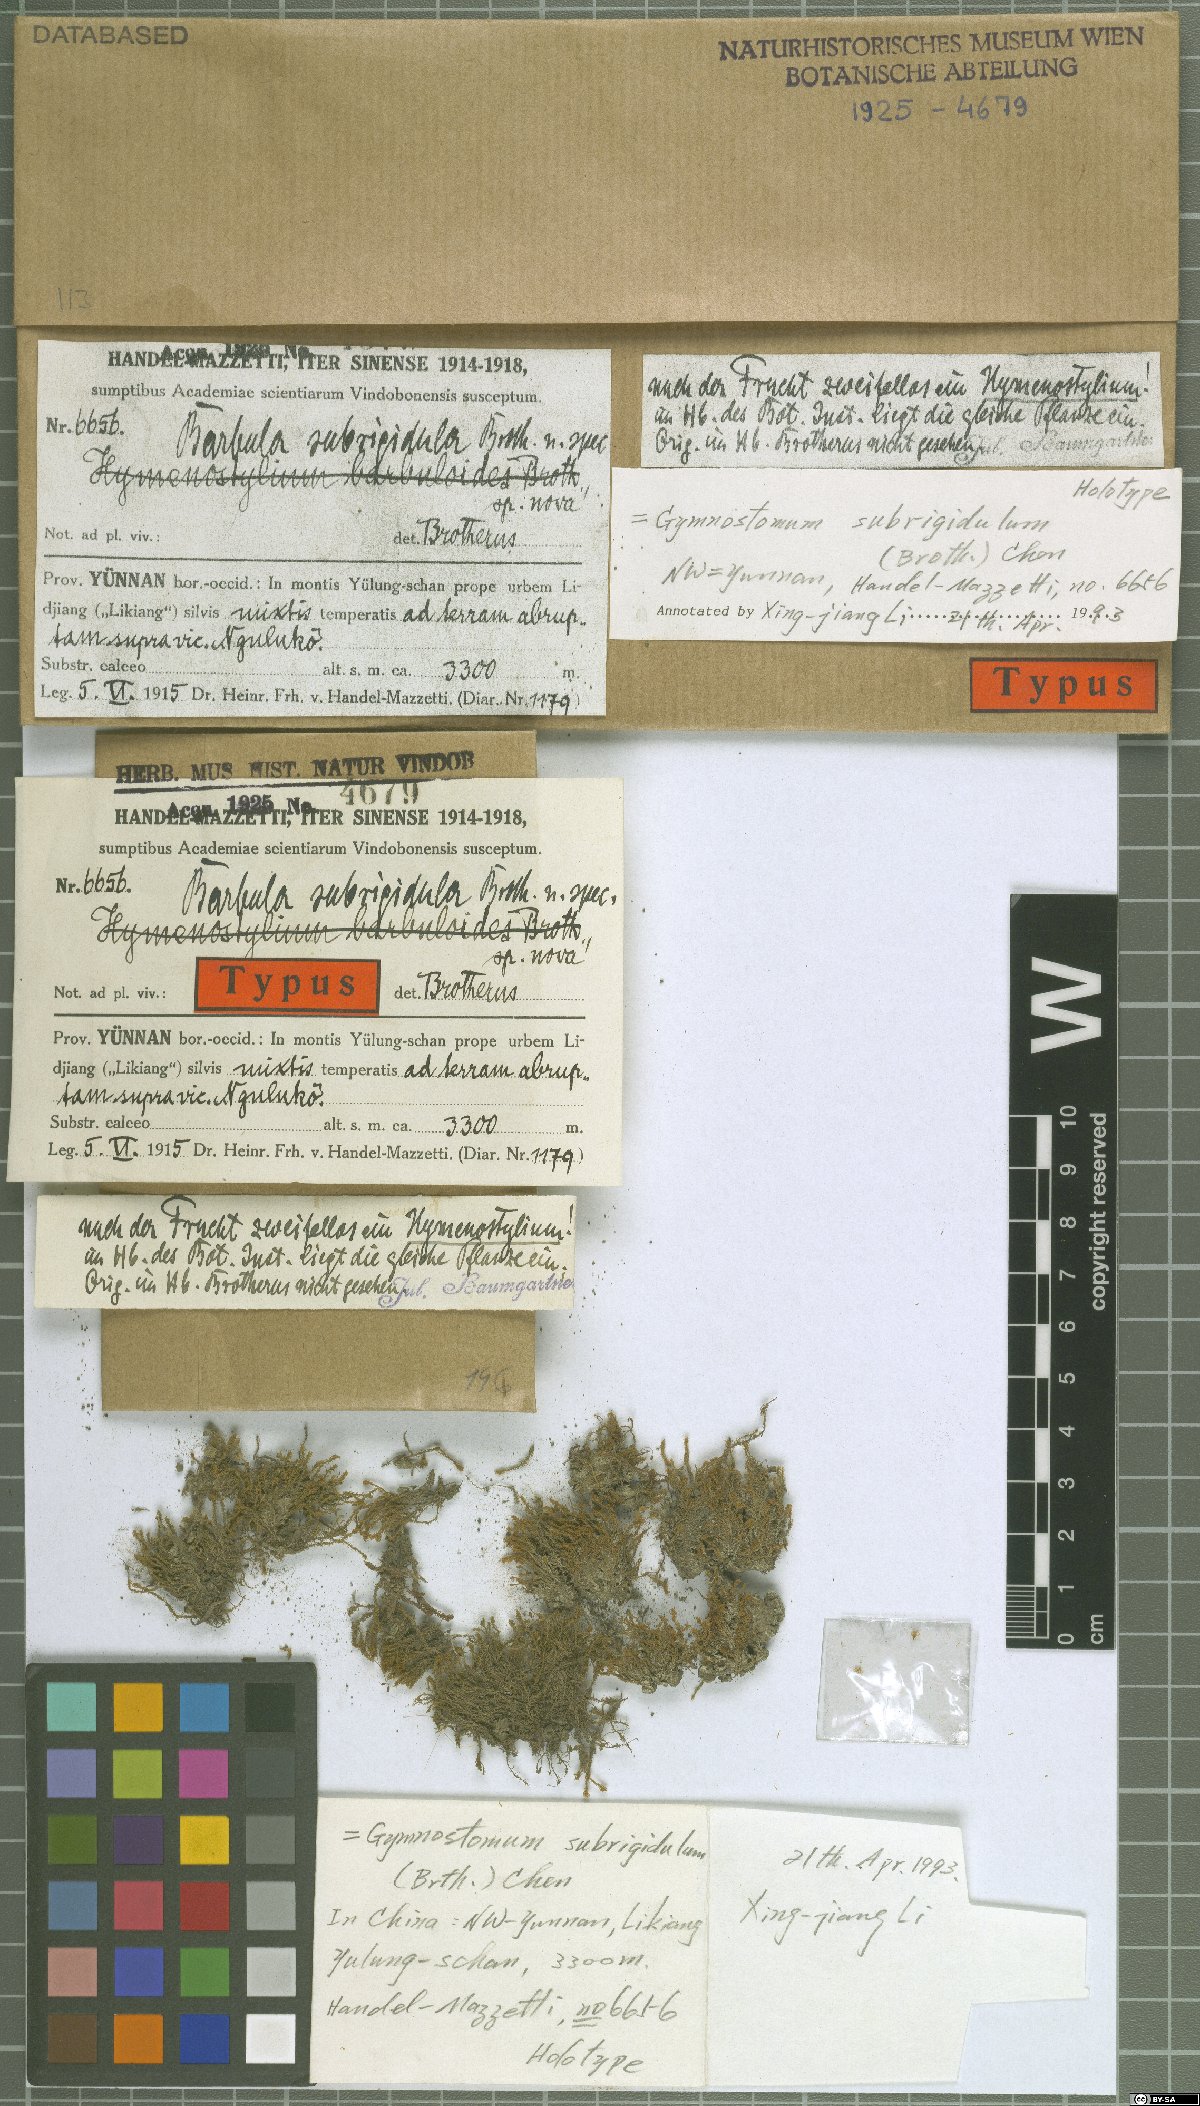 DATABASED
NATURHISTORISCHES MUSEUM WIEN
BOTANISCHE ABTEILUNG
1925 - 4679
113
Acqu. 1925 No.
HANDEL-MAZZETTI, ITER SINENSE 1914-1918,
sumptibus Academiae scientiarum Vindobonensis susceptum.
Nr. 6656. Barbula subrigidula Broth. n. spec.
Hymenostylium barbuloides Broth.
sp. nova!
Not. ad pl. viv.: det. Brotherus
Prov. YÜNNAN bor.-occid.: In montis Yülung-schan prope urbem Li-
djiang („Likiang“) silvis mixtis temperatis ad terram abrup-
tam supra vic. Ngulukö.
Substr. calceo alt. s. m. ca. 3300 m.
Leg. 5. VI. 1915 Dr. Heinr. Frh. v. Handel-Mazzetti. (Diar. Nr. 1179)
nach der Frucht zweifellos ein Hymenostylium!
im Hb. des Bot. Inst. liegt die gleiche Pflanze ein.
Orig. im Hb. Brotherus nicht gesehen Jul. Baumgartner
Holotype
= Gymnostomum subrigidulum
(Broth.) Chen
NW=Yunnan, Handel-Mazzetti, no. 6656
Annotated by Xing-jiang Li 21th. Apr. 1993
Typus
HERB. MUS HIST. NATUR VINDOB
Acqu. 1925 No. 4679
HANDEL-MAZZETTI, ITER SINENSE 1914-1918,
sumptibus Academiae scientiarum Vindobonensis susceptum.
Nr. 6656. Barbula subrigidula Broth. n. spec.
Hymenostylium barbuloides Broth.
sp. nova!
Typus
Not. ad pl. viv.: det. Brotherus
Prov. YÜNNAN bor.-occid.: In montis Yülung-schan prope urbem Li-
djiang („Likiang“) silvis mixtis temperatis ad terram abrup-
tam supra vic. Ngulukö.
Substr. calceo alt. s. m. ca. 3300 m.
Leg. 5. VI. 1915 Dr. Heinr. Frh. v. Handel-Mazzetti. (Diar. Nr. 1179)
nach der Frucht zweifellos ein Hymenostylium!
im Hb. des Bot. Inst. liegt die gleiche Pflanze ein.
Orig. im Hb. Brotherus nicht gesehen Jul. Baumgartner
W
0 1 2 3 4 5 6 7 8 9 10
cm
copyright reserved
= Gymnostomum subrigidulum
(Brth.) Chen
In China: NW-Yunnan, Likiang
Yulung-schan, 3300m.
Handel-Mazzetti, no 6656
Holotype
21th. Apr. 1993.
Xing-jiang Li
CC BY-SA